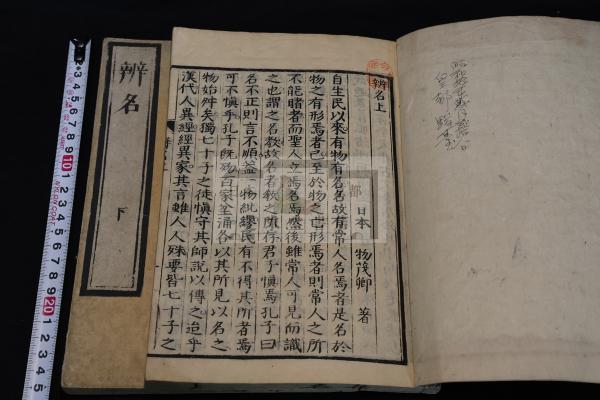 辨名上
日本 物茂卿 著
自生民以來有物有名名故有常人名焉者是名於
物之有形焉者已至於物之亡形焉者則常人之所
不能睹者而聖人立焉名焉然後雖常人可見而識
之也謂之名教故名者教之所存君子慎焉孔子曰
名不正則言不順蓋一物紕繆民有不得其所者焉
可不慎乎孔子既歿百家坌涌各以其所見以名之
物始舛矣獨七十子之徒慎守其師說以傳之迨乎
漢代人異經經異家其言雖人人殊要皆七十子之
辨名 下
10
20